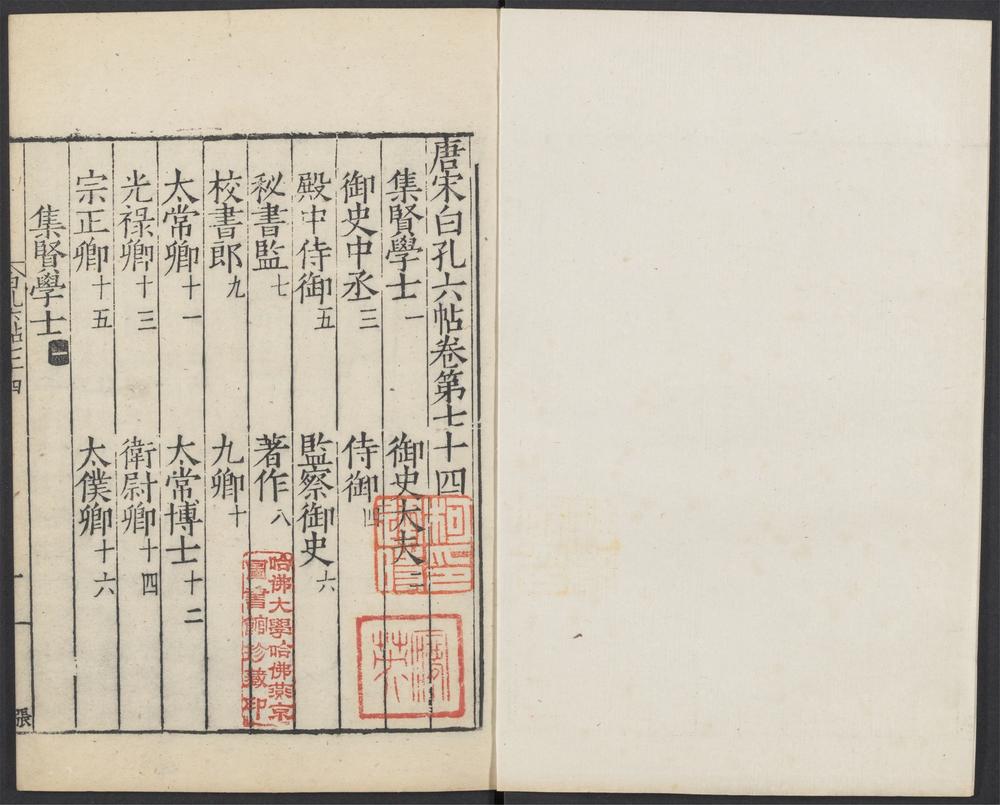 唐宋白孔六帖卷第七十四
集賢學士一　御史大夫二
御史中丞三　侍御四
殿中侍御五　監察御史六
秘書監七　著作八
校書郎九　九卿十
太常卿十一　太常博士十二
光祿卿十三　衛尉卿十四
宗正卿十五　太僕卿十六
集賢學士一
白孔六帖七十四
一
張
哈佛大學哈佛燕京
圖書館珍藏印